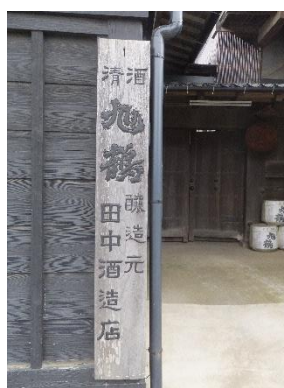 清酒
旭鶴
醸造元
田中酒造店